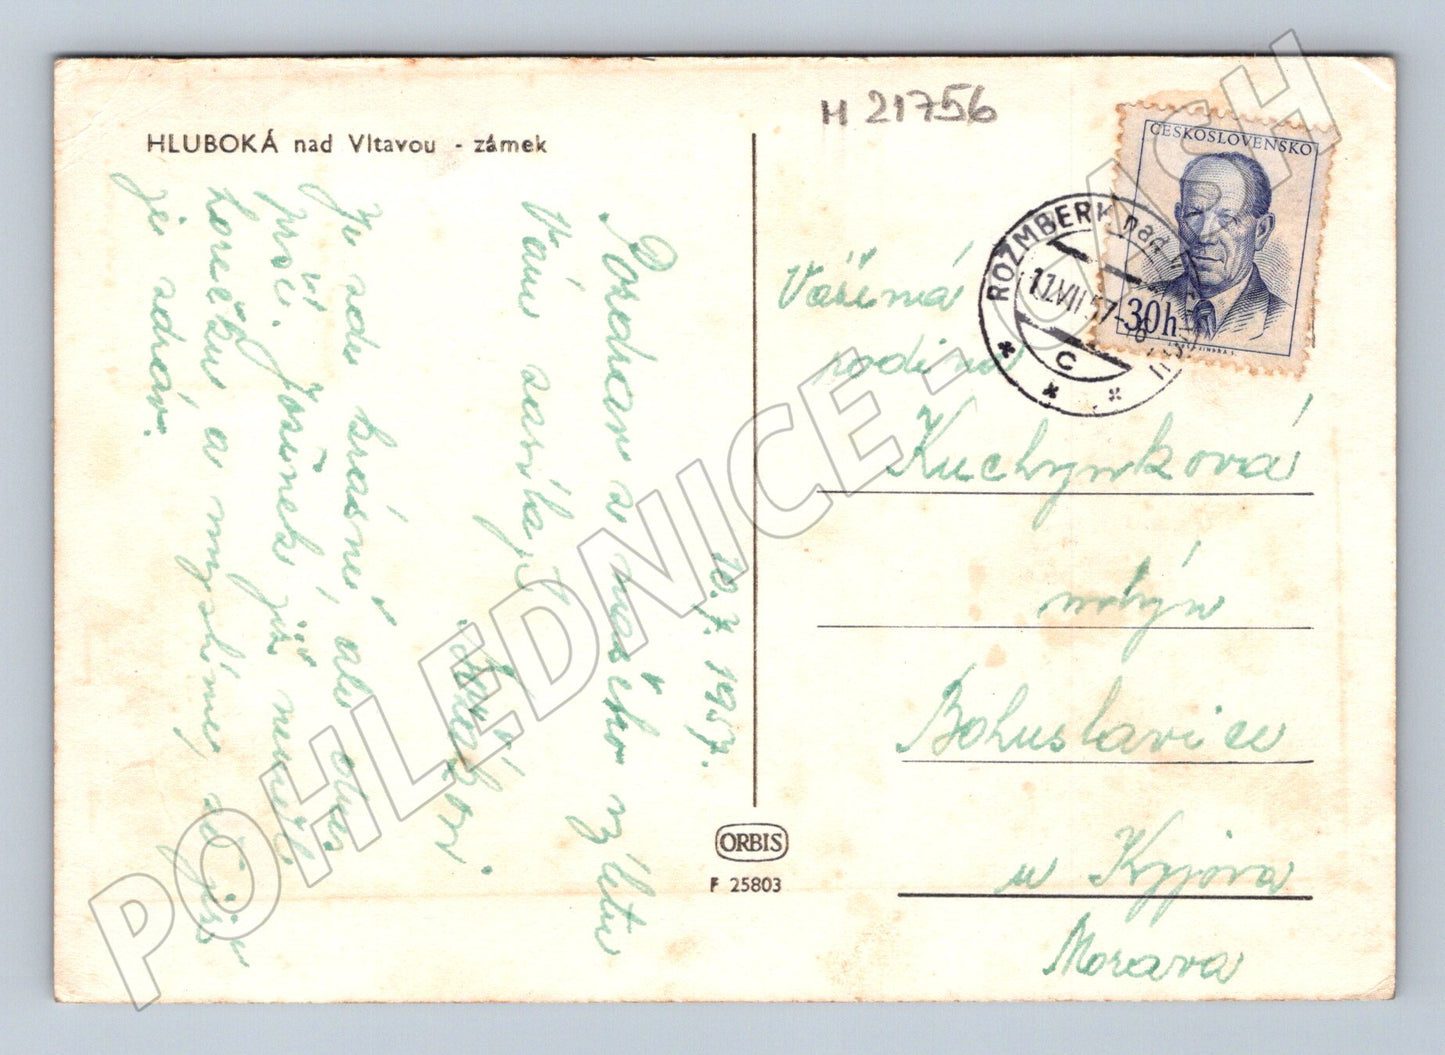 HLUBOKÁ nad Vltavou - zámek
H 21756
ČESKOSLOVENSKO
30h
ROŽMBERK nad
11.VII.57-8
C
10.7.1957.
Pozdrav z našeho výletu
Vám zasílají
Je zde krásně, ale dnes
prší. Jeníček již nemá
horečku a myslíme, že již
je zdráv.
Vážená
rodina
Kuchyňková
mlýn
Bohuslavice
u Kyjova
Morava
ORBIS
F 25803
POHLEDNICE - CASH